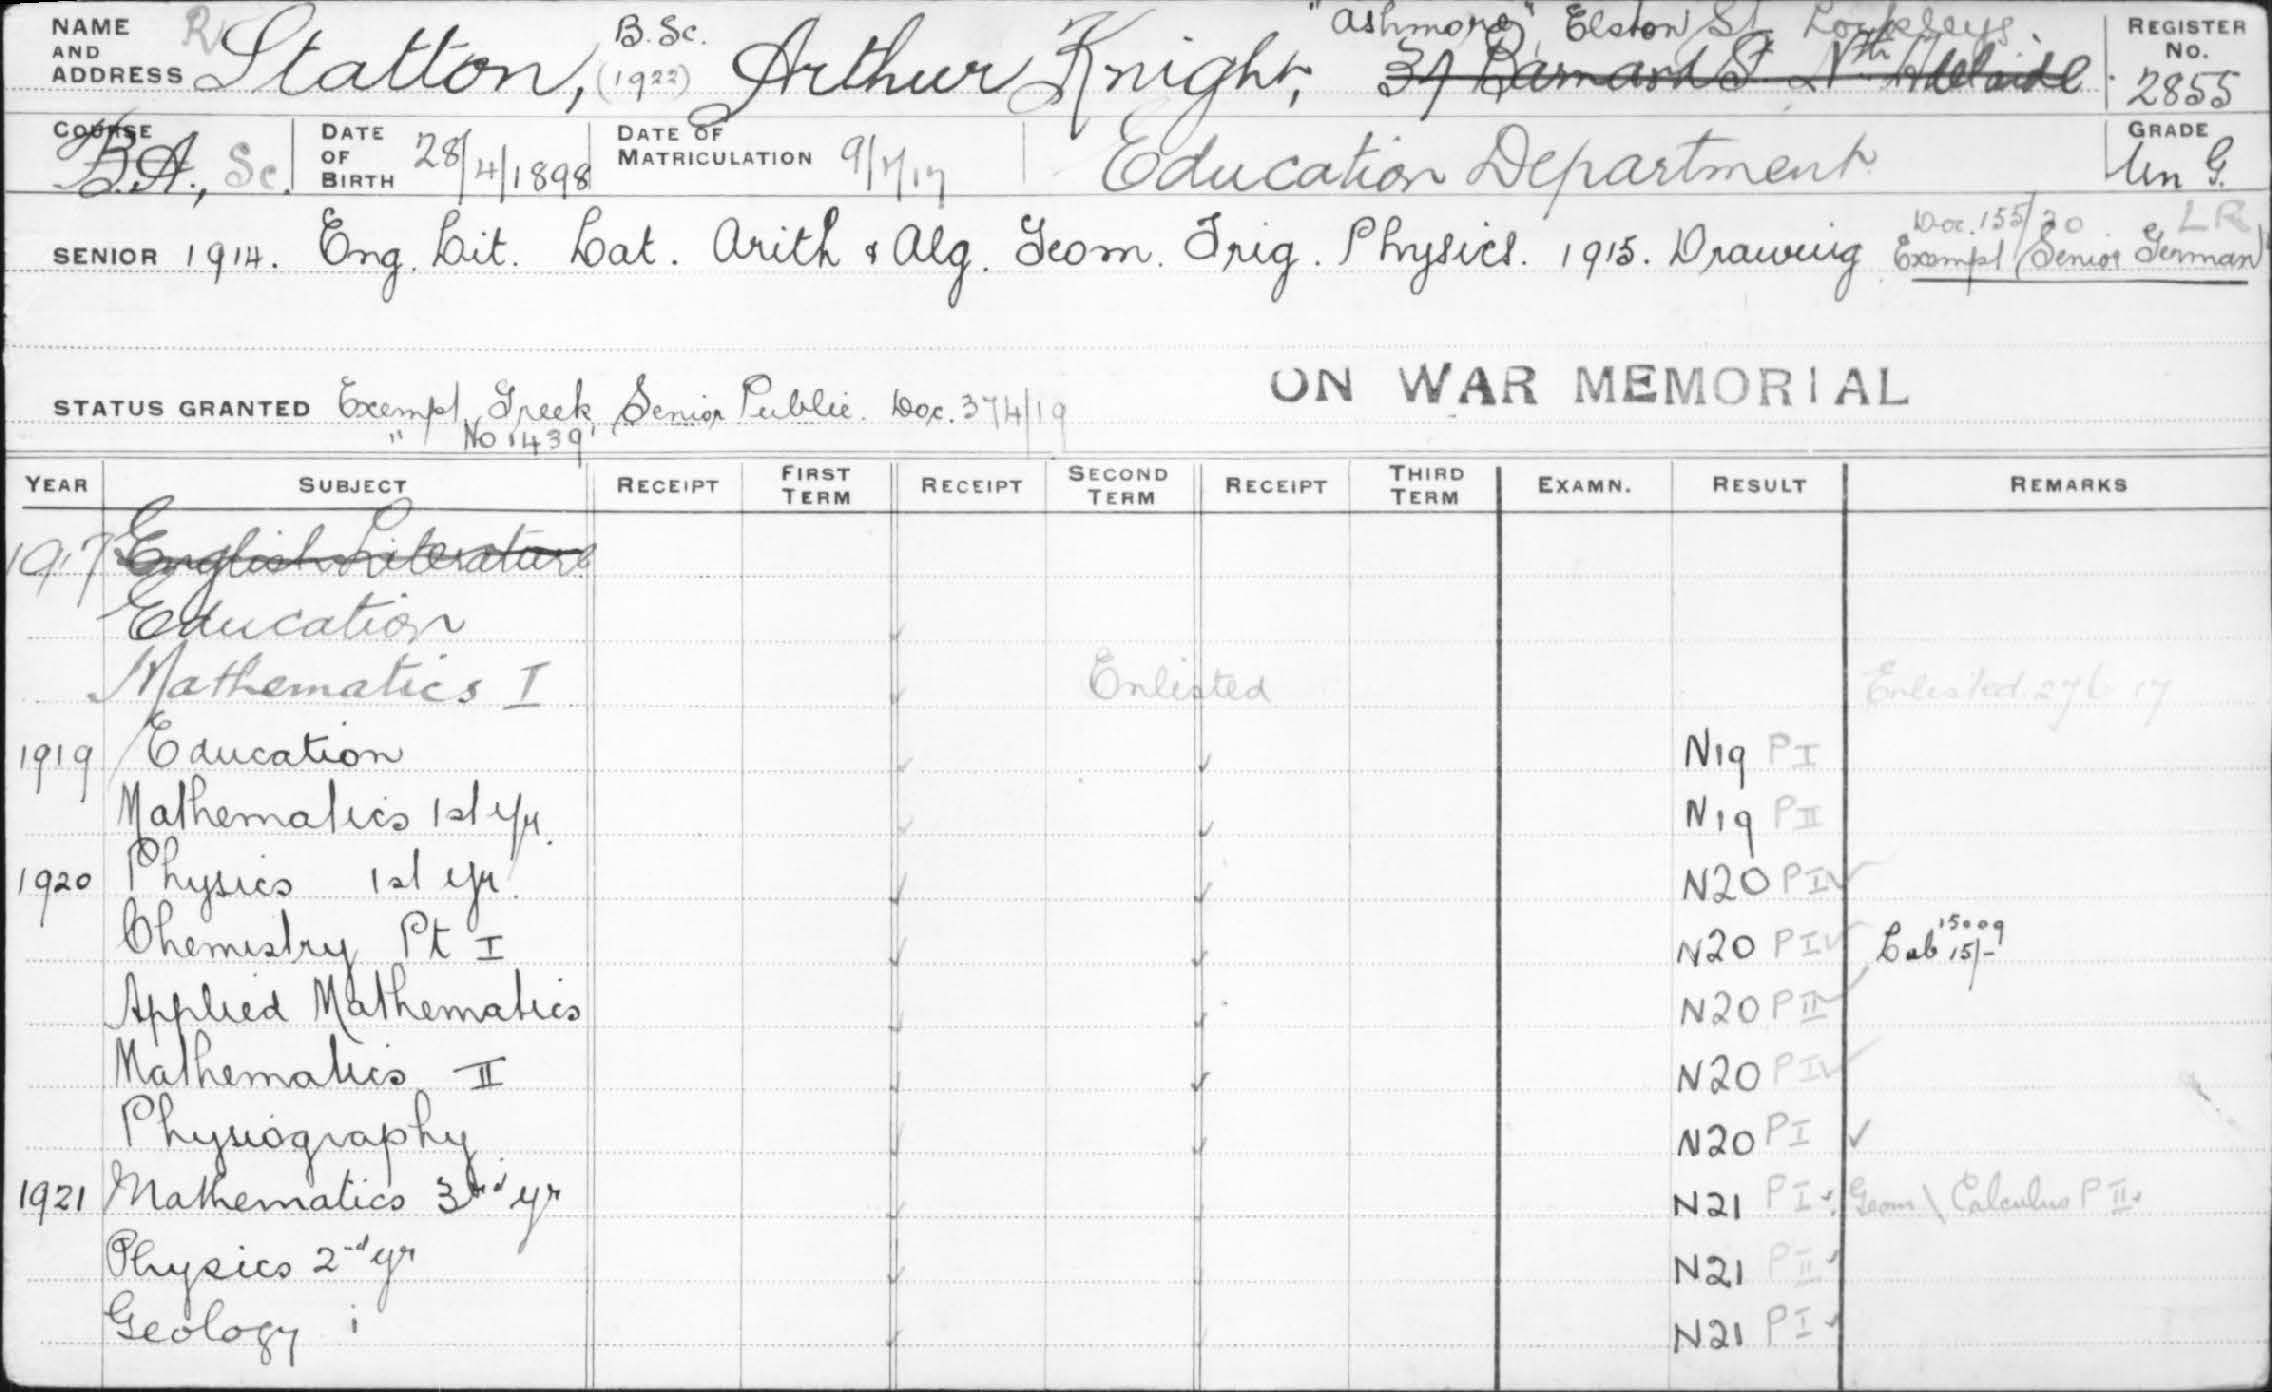 "Ashmore", Elston St. Lockleys
NAME AND ADDRESS R Statton, B.Sc. (1922) Arthur Knight, 37 Barnard St. Nth Adelaide. REGISTER No. 2855
COURSE B.A., Sc. DATE OF BIRTH 28/4/1898 DATE OF MATRICULATION 9/7/17 Education Department GRADE Un G.
Doc. 155/20 LR
SENIOR 1914. Eng. Lit. Lat. Arith & Alg. Geom. Trig. Physics. 1915. Drawing Exempt (Senior German)
ON WAR MEMORIAL
STATUS GRANTED Exempt Greek Senior Public. Doc. 374/19
" No 1439
YEAR SUBJECT RECEIPT FIRST TERM RECEIPT SECOND TERM RECEIPT THIRD TERM EXAMN. RESULT REMARKS
1917 English Literature
Education
Mathematics I Enlisted Enlisted 27 6 17
1919 Education N19 P I
Mathematics 1st yr. N19 P II
1920 Physics 1st yr. N20 P I
Chemistry Pt I N20 P I Lab 15009 15/-
Applied Mathematics N20 P II
Mathematics II N20 P I
Physiography N20 P I
1921 Mathematics 3rd yr N21 P I Geom \ Calculus P II
Physics 2nd yr N21 P II
Geology i N21 P I